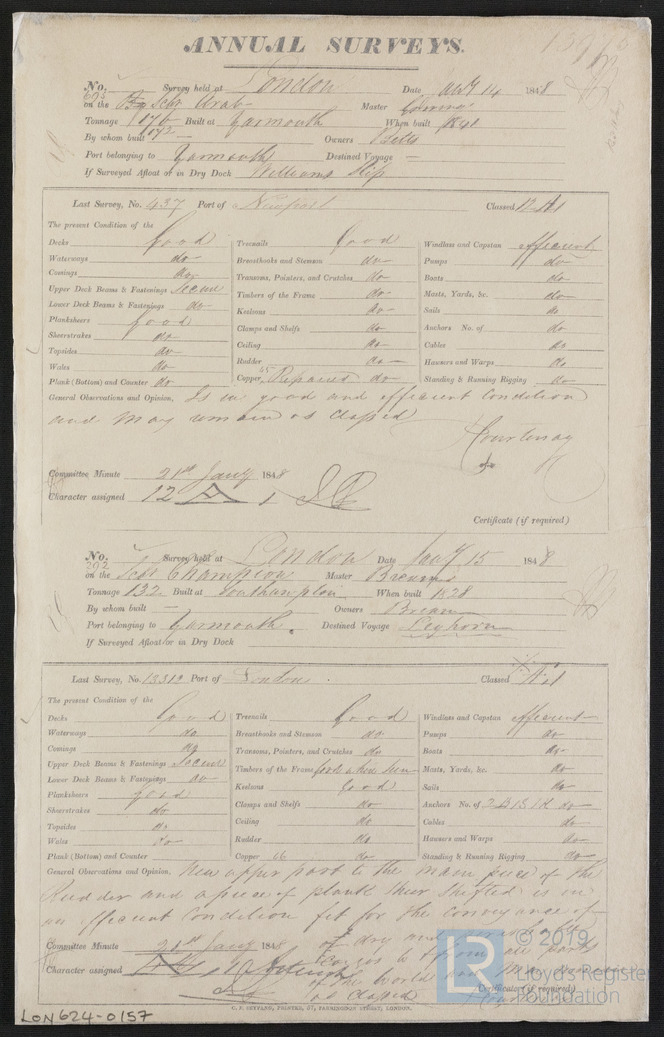 ANNUAL SURVEYS.
No. Survey held at London Date 14 1848
695 on the Schr Arab Master
Tonnage 176 Built at Yarmouth When built 1840
172
By whom built — Owners Betts
Port belonging to Yarmouth Destined Voyage —
If Surveyed Afloat or in Dry Dock Williams Slip
Last Survey, No. 437 Port of Newport Classed 12 A1
The present Condition of the
Decks Good
Waterways do
Comings do
Upper Deck Beams & Fastenings Secure
Lower Deck Beams & Fastenings do
Planksheers Good
Sheerstrakes do
Topsides do
Wales do
Plank (Bottom) and Counter do
Treenails Good
Breasthooks and Stemson do
Transoms, Pointers, and Crutches do
Timbers of the Frame do
Keelsons do
Clamps and Shelfs do
Ceiling do
Rudder do
Copper 45 Repaired do
Windlass and Capstan efficient
Pumps do
Boats do
Masts, Yards, &c. do
Sails do
Anchors No. of do
Cables do
Hawsers and Warps do
Standing & Running Rigging do
General Observations and Opinion, Is in good and efficient Condition
and May remain as Classed
Courtenay
Committee Minute 21st Jany 1848
Character assigned 12 A 1
Certificate (if required)
No. Survey held at London Date Jany 15 1848
292 on the Schr Champion Master
Tonnage 132 Built at Southampton When built 1828
By whom built — Owners
Port belonging to Yarmouth. Destined Voyage Leghorn
If Surveyed Afloat or in Dry Dock
Last Survey, No. 13312 Port of London Classed
The present Condition of the
Decks Good
Waterways do
Comings do
Upper Deck Beams & Fastenings Secure
Lower Deck Beams & Fastenings do
Planksheers Good
Sheerstrakes do
Topsides do
Wales do
Plank (Bottom) and Counter
Treenails Good
Breasthooks and Stemson do
Transoms, Pointers, and Crutches do
Timbers of the Frame Good where seen
Keelsons Good
Clamps and Shelfs do
Ceiling do
Rudder do
Copper 46 do
Windlass and Capstan efficient
Pumps do
Boats do
Masts, Yards, &c. do
Sails do
Anchors No. of 2 B 1 S 1 K do
Cables do
Hawsers and Warps do
Standing & Running Rigging do
General Observations and Opinion, New upper part to the Main piece of the
Rudder and a piece of plank near shifted is in
an efficient Condition fit for the conveyance of
dry and
to & from all parts
of the World and May
as Classed
Committee Minute 21st Jany 1848
Character assigned
Certificate (if required)
C. F. SEYFANG, PRINTER, 57, FARRINGDON STREET, LONDON.
LON624-0157
© 2019
LR
Lloyd's Register
Foundation